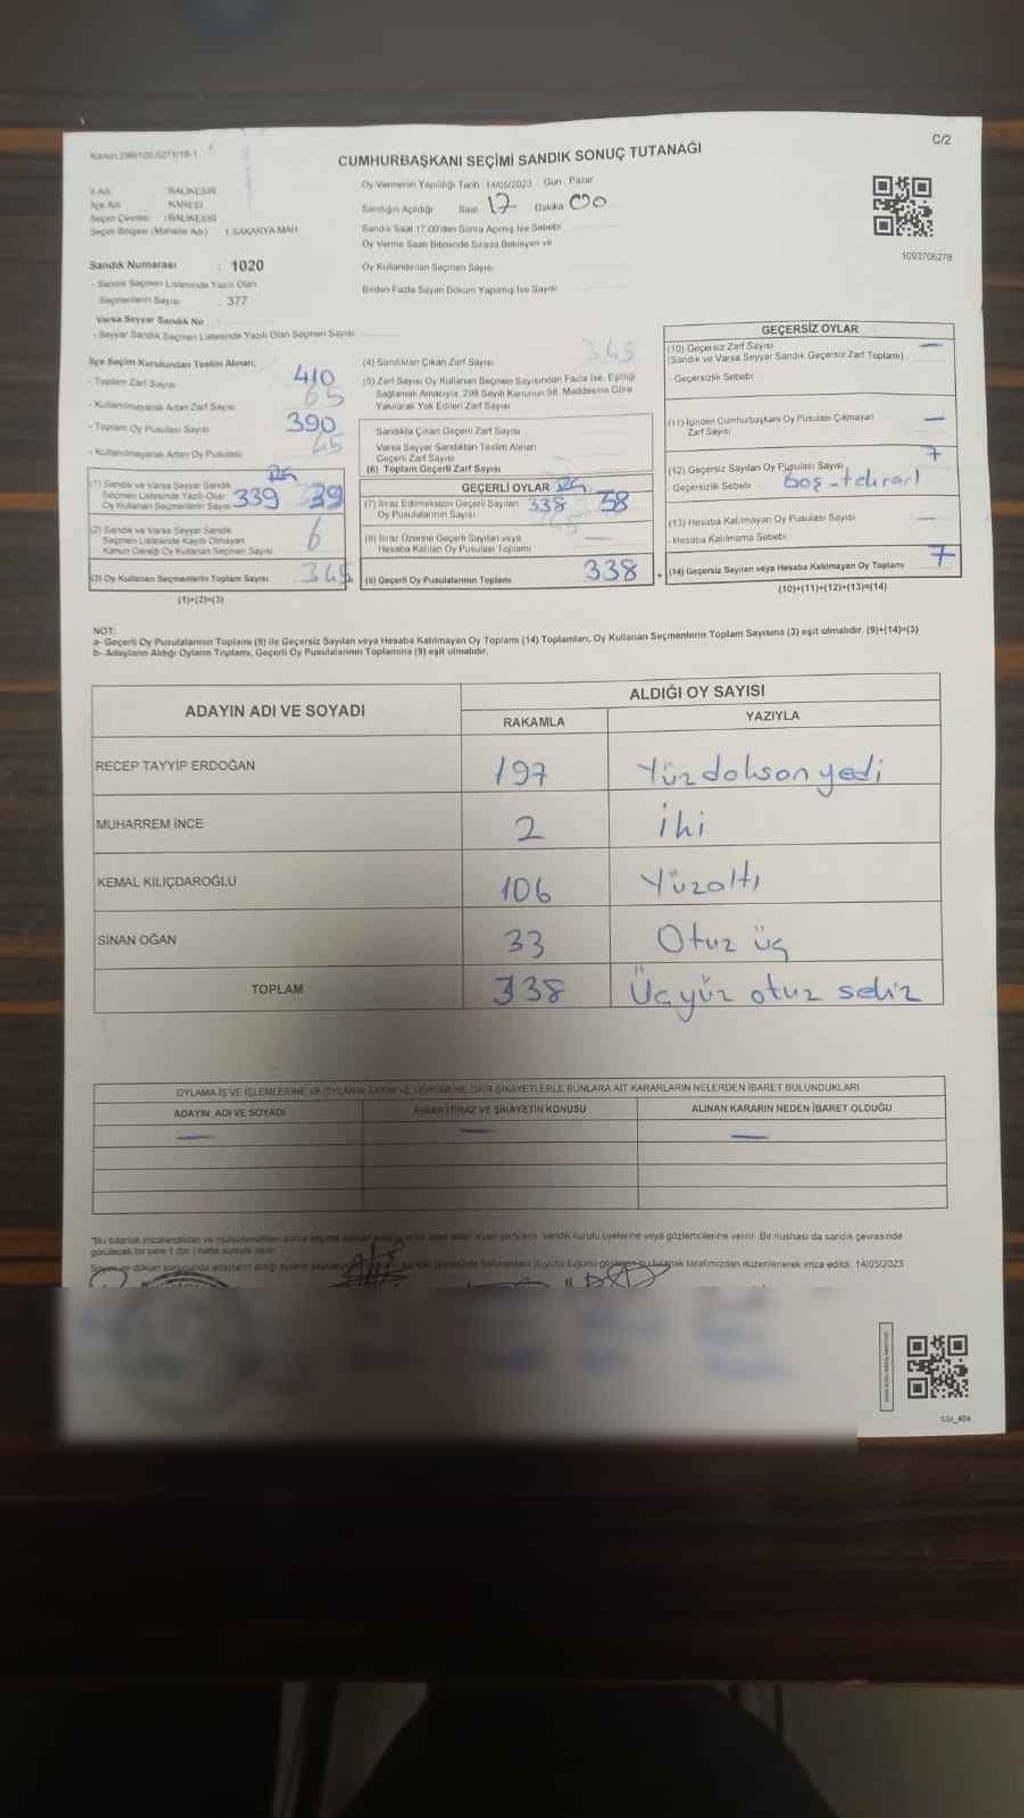 Kanun:298/105-6271/18-1
C/2
CUMHURBAŞKANI SEÇİMİ SANDIK SONUÇ TUTANAĞI
İl Adı : BALIKESİR
İlçe Adı : KARESİ
Seçim Çevresi : BALIKESİR
Seçim Bölgesi (Mahalle Adı) : 1.SAKARYA MAH.
Oy Vermenin Yapıldığı Tarih 14/05/2023 Gün: Pazar
Sandığın Açıldığı Saat 17 Dakika 00
Sandık Saat 17.00'den Sonra Açılmış İse Sebebi
Oy Verme Saati Bitiminde Sırada Bekleyen ve
Oy Kullandırılan Seçmen Sayısı
Birden Fazla Sayım Döküm Yapılmış İse Sayısı
1093706278
Sandık Numarası : 1020
- Sandık Seçmen Listesinde Yazılı Olan
Seçmenlerin Sayısı : 377
Varsa Seyyar Sandık No :
- Seyyar Sandık Seçmen Listesinde Yazılı Olan Seçmen Sayısı
İlçe Seçim Kurulundan Teslim Alınan;
- Toplam Zarf Sayısı 410
- Kullanılmayarak Artan Zarf Sayısı 65
- Toplam Oy Pusulası Sayısı 390
- Kullanılmayarak Artan Oy Pusulası 45
(1) Sandık ve Varsa Seyyar Sandık
Seçmen Listesinde Yazılı Olup
Oy Kullanan Seçmenlerin Sayısı 339 39
(2) Sandık ve Varsa Seyyar Sandık
Seçmen Listesinde Kayıtlı Olmayan
Kanun Gereği Oy Kullanan Seçmen Sayısı 6
(3) Oy Kullanan Seçmenlerin Toplam Sayısı 345
(1)+(2)=(3)
(4) Sandıktan Çıkan Zarf Sayısı 345
(5) Zarf Sayısı Oy Kullanan Seçmen Sayısından Fazla İse, Eşitliği
Sağlamak Amacıyla, 298 Sayılı Kanunun 98. Maddesine Göre
Yakılarak Yok Edilen Zarf Sayısı
Sandıkta Çıkan Geçerli Zarf Sayısı
Varsa Seyyar Sandıktan Teslim Alınan
Geçerli Zarf Sayısı
(6) Toplam Geçerli Zarf Sayısı
GEÇERLİ OYLAR
(7) İtiraz Edilmeksizin Geçerli Sayılan
Oy Pusulalarının Sayısı 338 38
(8) İtiraz Üzerine Geçerli Sayılan veya
Hesaba Katılan Oy Pusulası Toplamı —
(9) Geçerli Oy Pusulalarının Toplamı 338
GEÇERSİZ OYLAR
(10) Geçersiz Zarf Sayısı —
(Sandık ve Varsa Seyyar Sandık Geçersiz Zarf Toplamı)
- Geçersizlik Sebebi
(11) İçinden Cumhurbaşkanı Oy Pusulası Çıkmayan
Zarf Sayısı —
(12) Geçersiz Sayılan Oy Pusulası Sayısı 7
- Geçersizlik Sebebi boş - tekrarl
(13) Hesaba Katılmayan Oy Pusulası Sayısı —
- Hesaba Katılmama Sebebi
(14) Geçersiz Sayılan veya Hesaba Katılmayan Oy Toplamı 7
(10)+(11)+(12)+(13)=(14)
NOT:
a- Geçerli Oy Pusulalarının Toplamı (9) ile Geçersiz Sayılan veya Hesaba Katılmayan Oy Toplamı (14) Toplamları, Oy Kullanan Seçmenlerin Toplam Sayısına (3) eşit olmalıdır. (9)+(14)=(3)
b- Adayların Aldığı Oyların Toplamı, Geçerli Oy Pusulalarının Toplamına (9) eşit olmalıdır.
ADAYIN ADI VE SOYADI
ALDIĞI OY SAYISI
RAKAMLA YAZIYLA
RECEP TAYYİP ERDOĞAN 197 Yüzdoksonyedi
MUHARREM İNCE 2 iki
KEMAL KILIÇDAROĞLU 106 Yüzaltı
SİNAN OĞAN 33 Otuz üç
TOPLAM 338 Üçyüz otuz sekiz
OYLAMA İŞ VE İŞLEMLERİNE VE OYLARIN SAYIM VE DÖKÜMÜNE DAİR ŞİKAYETLERLE BUNLARA AİT KARARLARIN NELERDEN İBARET BULUNDUKLARI
ADAYIN ADI VE SOYADI
İHBAR İTİRAZ VE ŞİKAYETİN KONUSU
ALINAN KARARIN NEDEN İBARET OLDUĞU
— — —
sandık kurulu üyelerine veya gözlemcilerine verilir. Bir nüshası da sandık çevresinde
görülecek bir yere 1 (bir) hafta süreyle asılır.
tarafımızdan düzenlenerek imza edildi. 14/05/2023